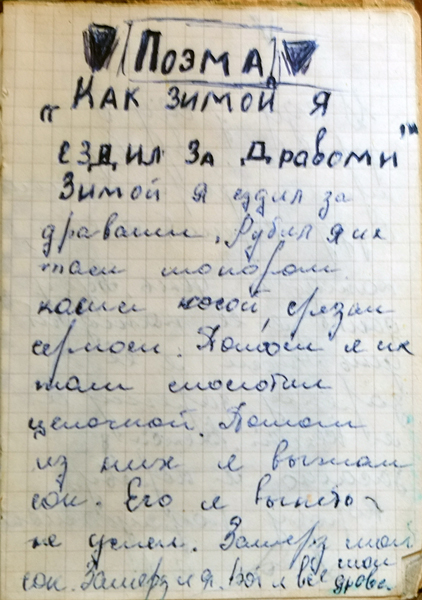 Поэма
"Как зимой я
ездил за дравоми"
Зимой я ездил за
дравами. Рубил я их
там топором.
косил косой, срезал
серпом. Потом я их
там смолотил
цепочкой. Потом
из них я выжал
сок. Его я выпить
не успел. Замерз мой
сок. Замерз и я. Вот и все мои
дрова.